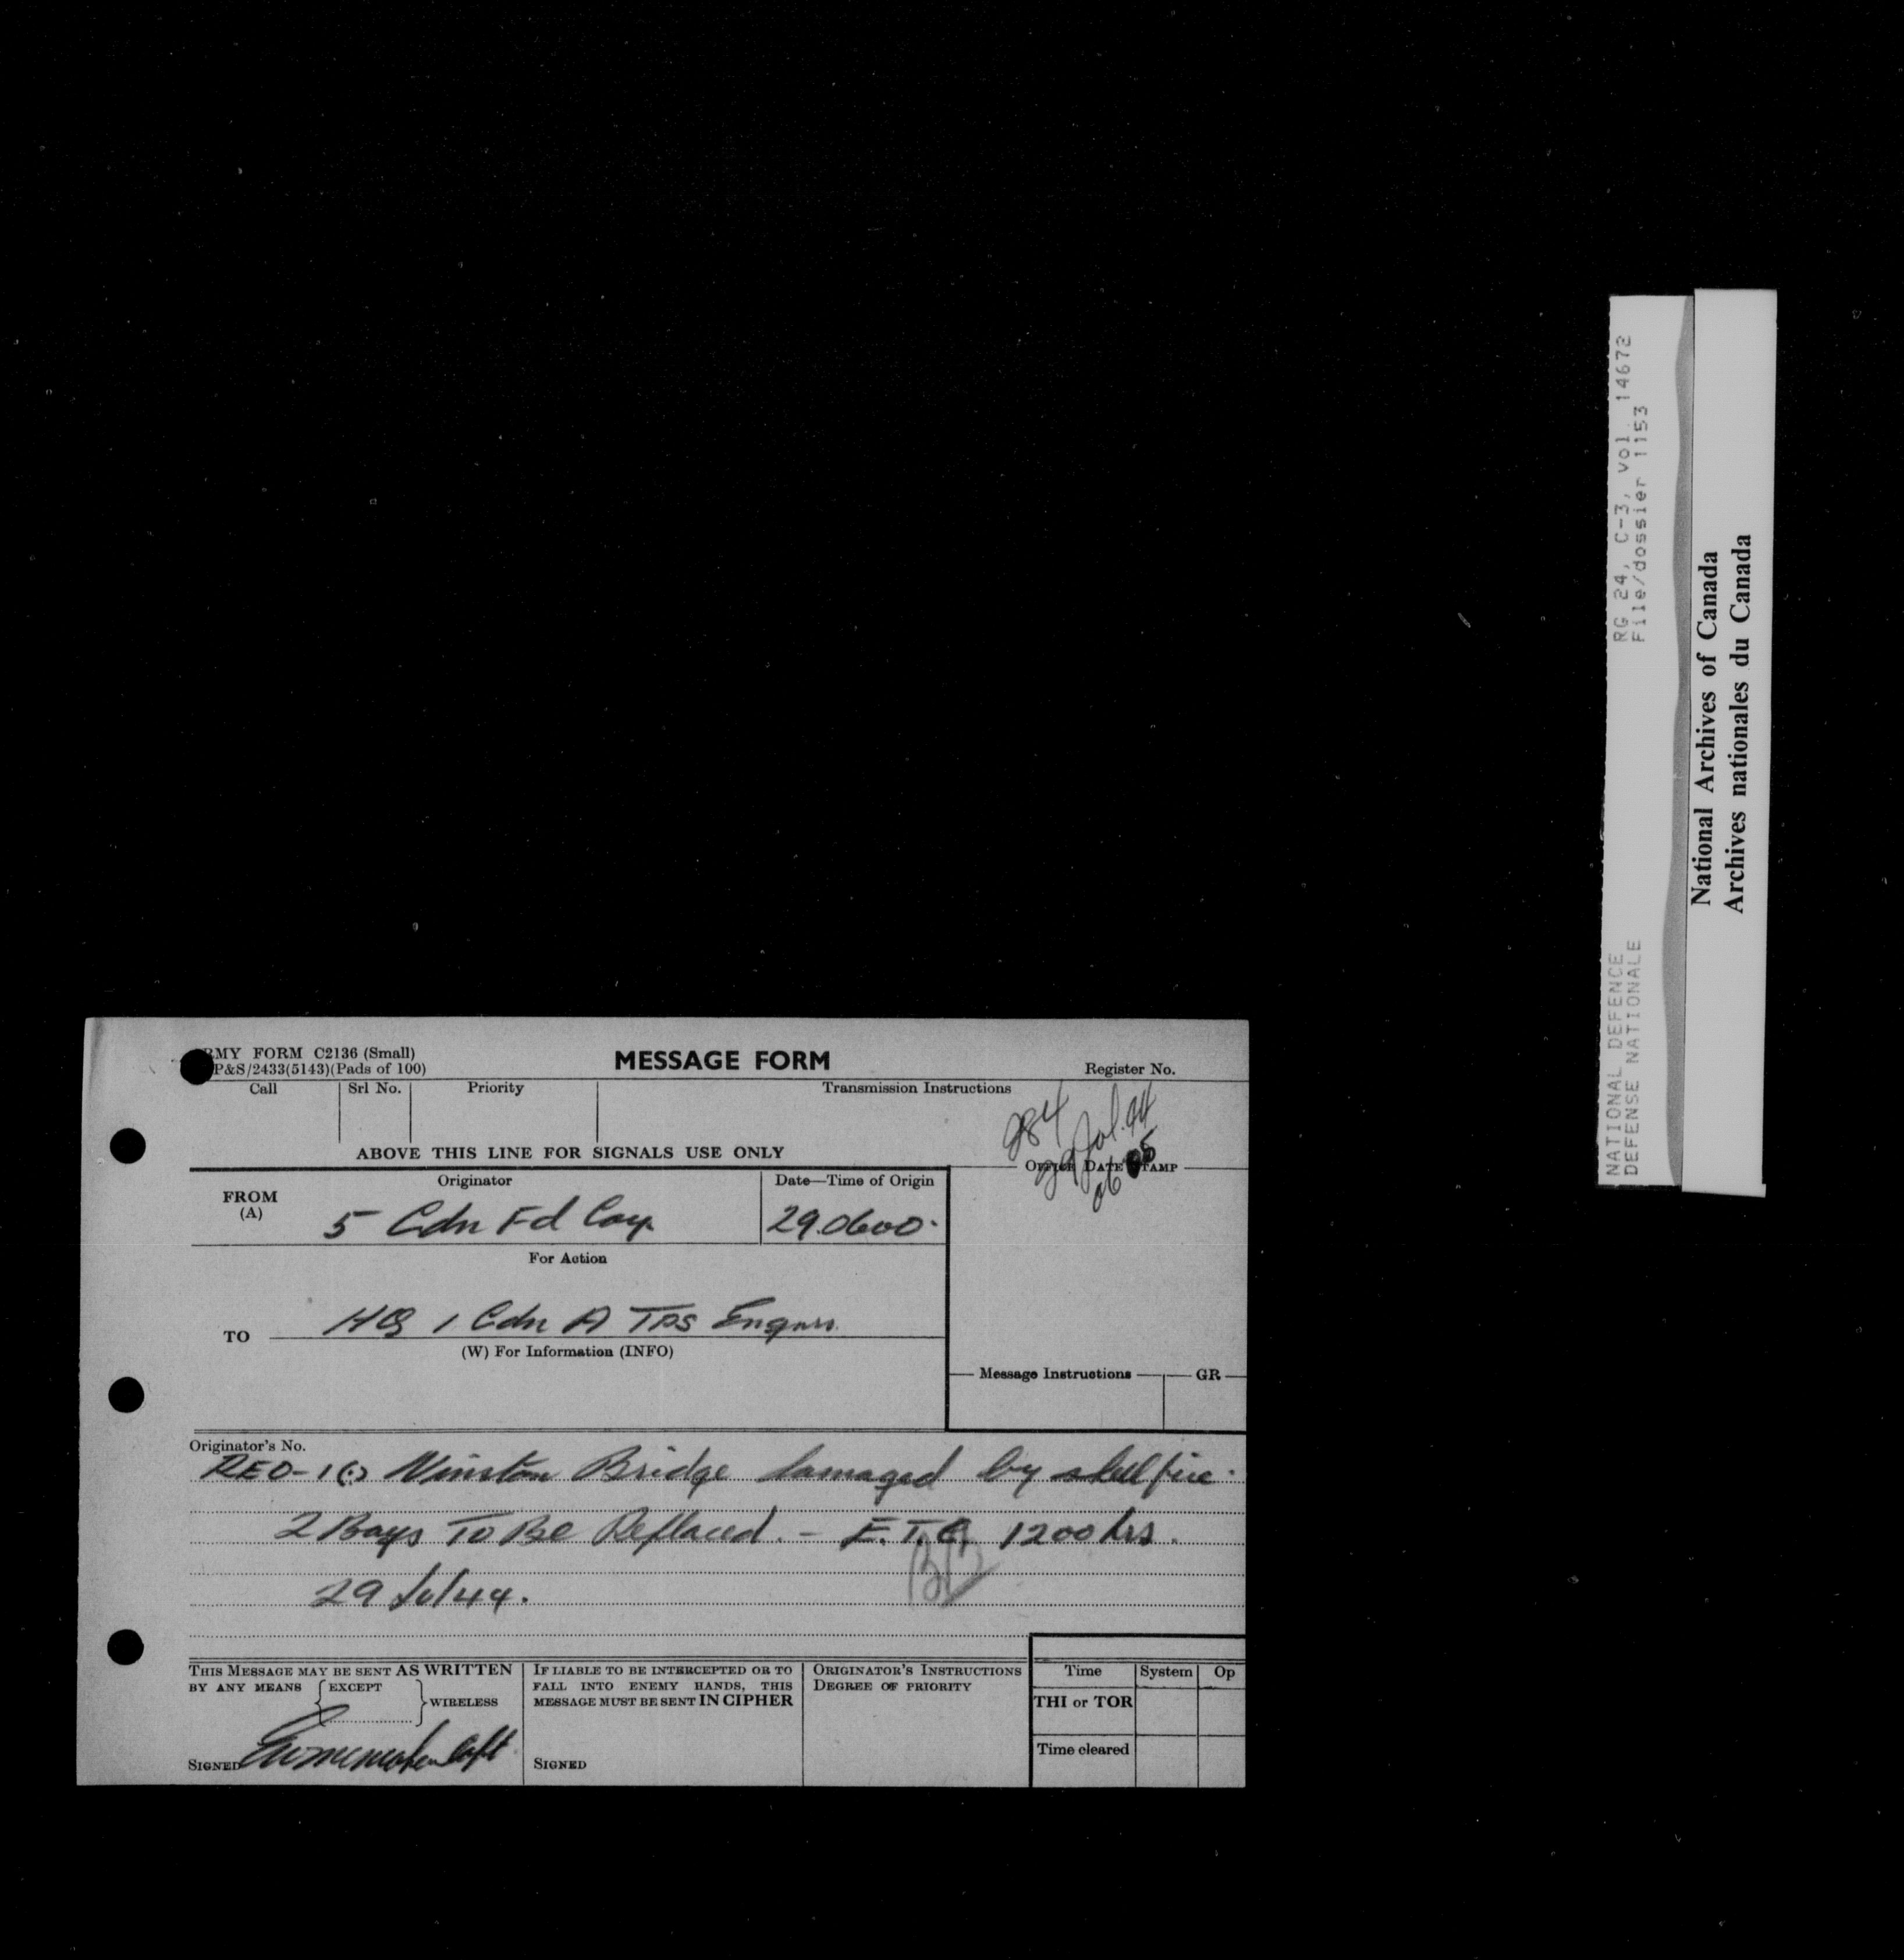 ARMY FORM C2136 (Small)
P&S/2433(5143)(Pads of 100)
MESSAGE FORM
Register No.
Call
Srl No.
Priority
Transmission Instructions
284
29 Jul. 44
ABOVE THIS LINE FOR SIGNALS USE ONLY
OFFICE DATE STAMP
FROM
(A)
Originator
Date—Time of Origin
5 Cdn Fd Coy.
29.0600.
For Action
TO
HQ 1 Cdn A Tps Engrs.
(W) For Information (INFO)
Message Instructions
GR
Originator's No.
REO-1 (.) Winston Bridge damaged by shell fire.
2 Bays To Be Replaced. - E.T.C. 1200 hrs.
29
BB
THIS MESSAGE MAY BE SENT AS WRITTEN
BY ANY MEANS EXCEPT WIRELESS
SIGNED
IF LIABLE TO BE INTERCEPTED OR TO
FALL INTO ENEMY HANDS, THIS
MESSAGE MUST BE SENT IN CIPHER
SIGNED
ORIGINATOR'S INSTRUCTIONS
DEGREE OF PRIORITY
Time
System
Op
THI or TOR
Time cleared
NATIONAL DEFENCE RG 24, C-3, vol. 14672
DEFENSE NATIONALE File/dossier 1153
National Archives of Canada
Archives nationales du Canada